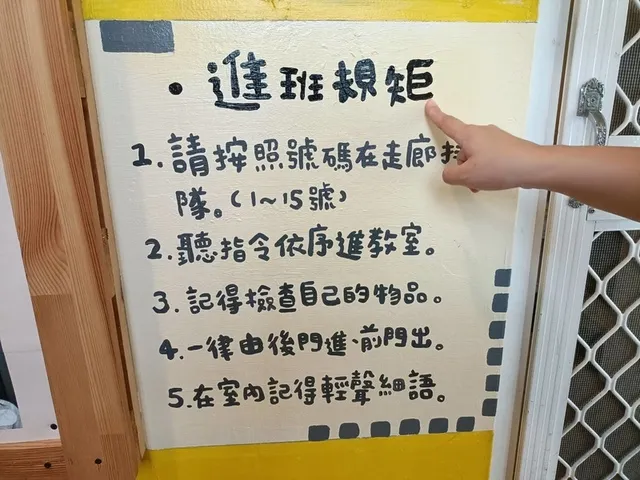 • 進班規矩
1. 請按照號碼在走廊排
隊。(1~15號)
2. 聽指令依序進教室。
3. 記得檢查自己的物品。
4. 一律由後門進、前門出。
5. 在室內記得輕聲細語。